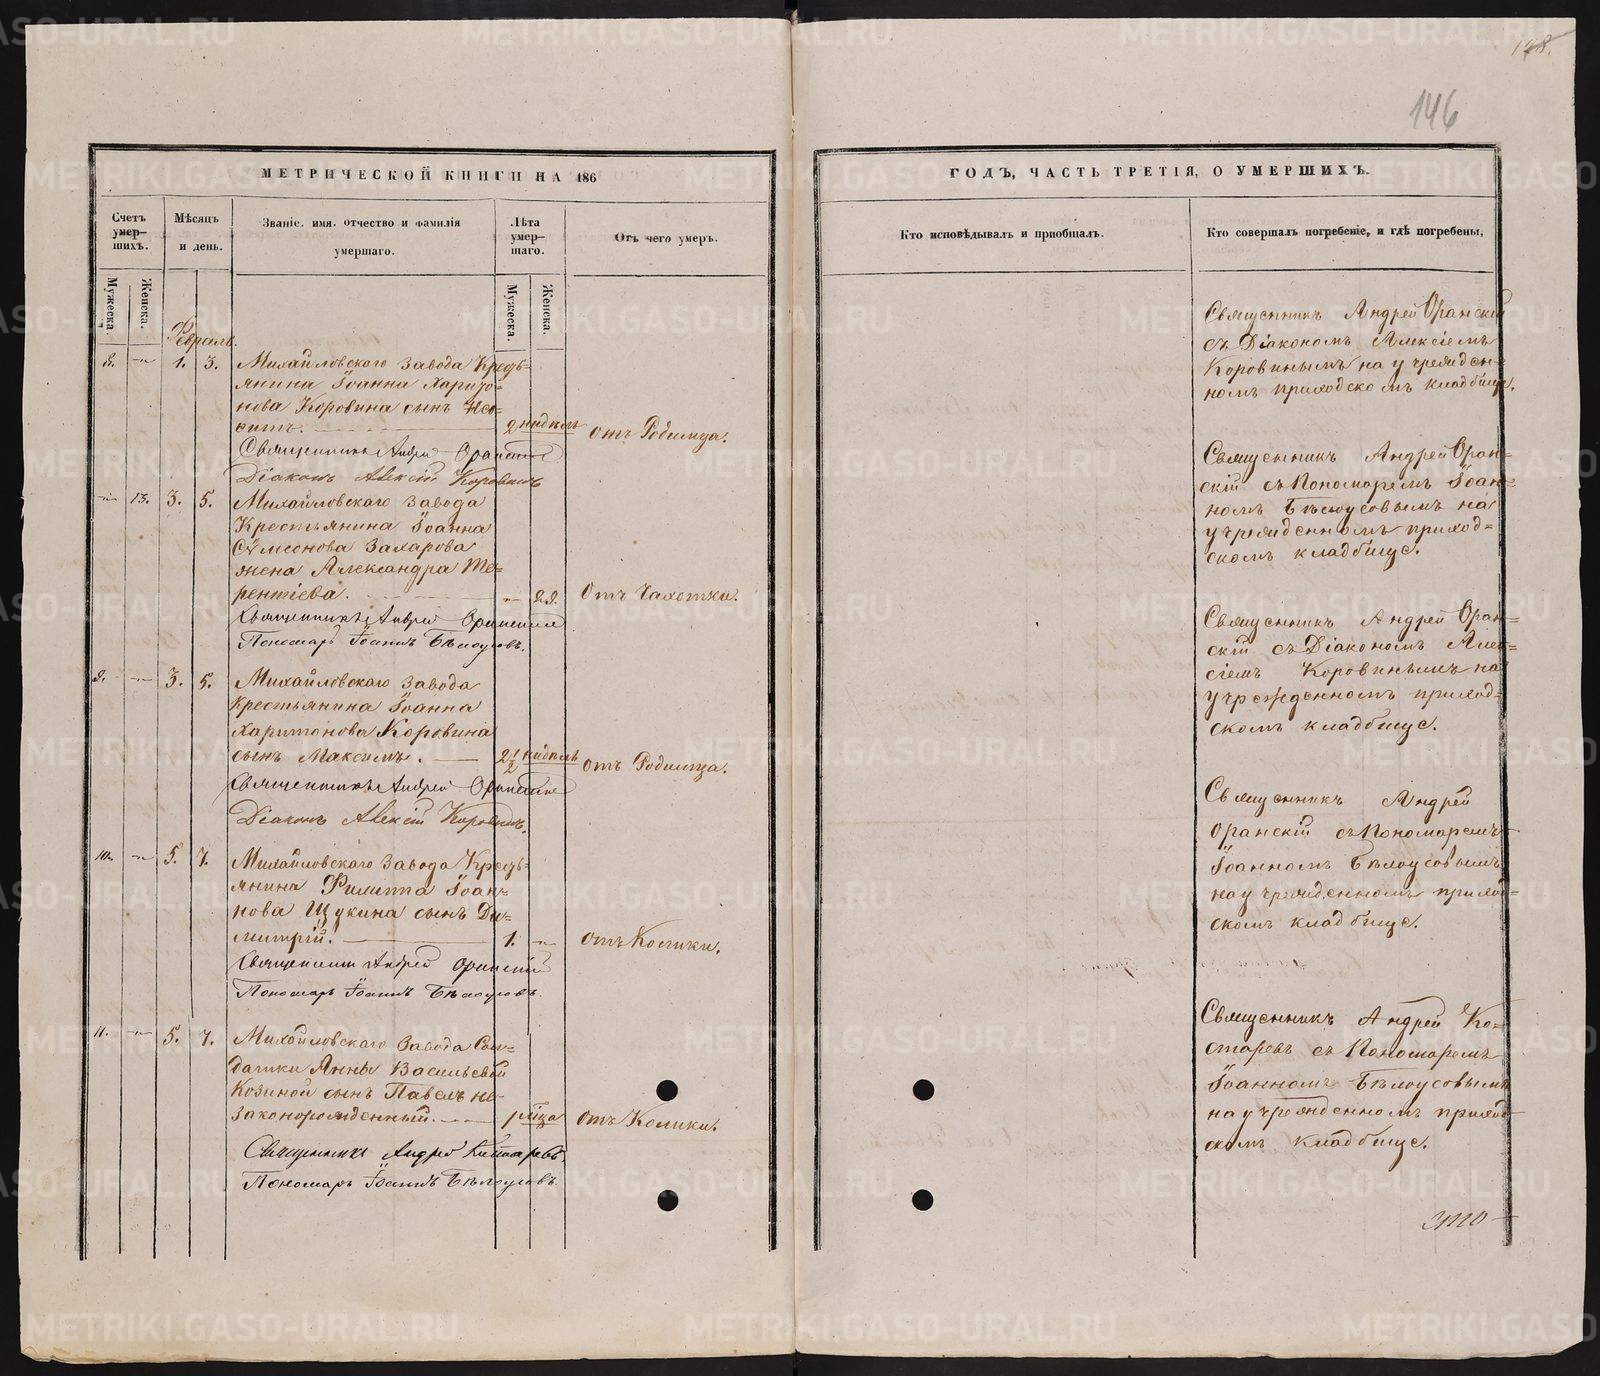 178.
146
МЕТРИЧЕСКОЙ КНИГИ НА 186
ГОДЪ, ЧАСТЬ ТРЕТІЯ, О УМЕРШИХЪ.
Счетъ умер-шихъ.
Мѣсяцъ и день.
Званіе. имя. отчество и фамилія умершаго.
Лѣта умер-шаго.
Отъ чего умеръ.
Кто исповѣдывалъ и приобщалъ.
Кто совершалъ погребеніе, и гдѣ погребены,
Мужеска.
Женска.
Мужеска.
Женска.
Февраль.
8. 1. 3. Михайловскаго завода Кресть-
янина Іоанна Харито-
нова Коровина сынъ
2 недѣль
Отъ Родимца.
Священникъ Андрей Оранскій
Діаконъ Алексій Коровинъ
Священникъ Андрей Оранскій
съ Діакономъ Алексіемъ
Коровинымъ на учрежден-
номъ приходскомъ кладбище.
13. 3. 5. Михайловскаго завода
Крестьянина Іоанна
Сѵмеонова Захарова
жена Александра Те-
рентіева. 22.
Отъ Чахотки.
Священникъ Андрей Оранскій
Пономарь Іоаннъ Бѣлоусовъ.
Священникъ Андрей Оран-
скій съ Пономаремъ Іоан-
номъ Бѣлоусовымъ на
учрежденномъ приход-
скомъ кладбище.
9. 3. 5. Михайловскаго завода
Крестьянина Іоанна
Харитонова Коровина
сынъ Максимъ. 2 1/2 недѣль
Отъ Родимца.
Священникъ Андрей Оранскій
Діаконъ Алексій Коровинъ.
Священникъ Андрей Оран-
скій съ Діакономъ Алек-
сіемъ Коровинымъ на
учрежденномъ приход-
скомъ кладбище.
10. 5. 7. Михайловскаго завода Кресть-
янина Филиппа Іоан-
нова Щукина сынъ Ди-
митрій. 1.
Отъ Колики.
Священникъ Андрей Оранскій
Пономарь Іоаннъ Бѣлоусовъ.
Священникъ Андрей
Оранскій съ Пономаремъ
Іоанномъ Бѣлоусовымъ
на учрежденномъ приход-
скомъ кладбище.
11. 5. 7. Михайловскаго завода Сол-
датки Анны Васильевой
Козиной сынъ Павелъ не-
законорожденный. 1 мѣца
Отъ Колики.
Священникъ Андрей Костаревъ.
Пономарь Іоаннъ Бѣлоусовъ.
Священникъ Андрей Ко-
старевъ съ Пономаремъ
Іоанномъ Бѣлоусовымъ
на учрежденномъ приход-
скомъ кладбище.
METRIKI.GASO-URAL.RU